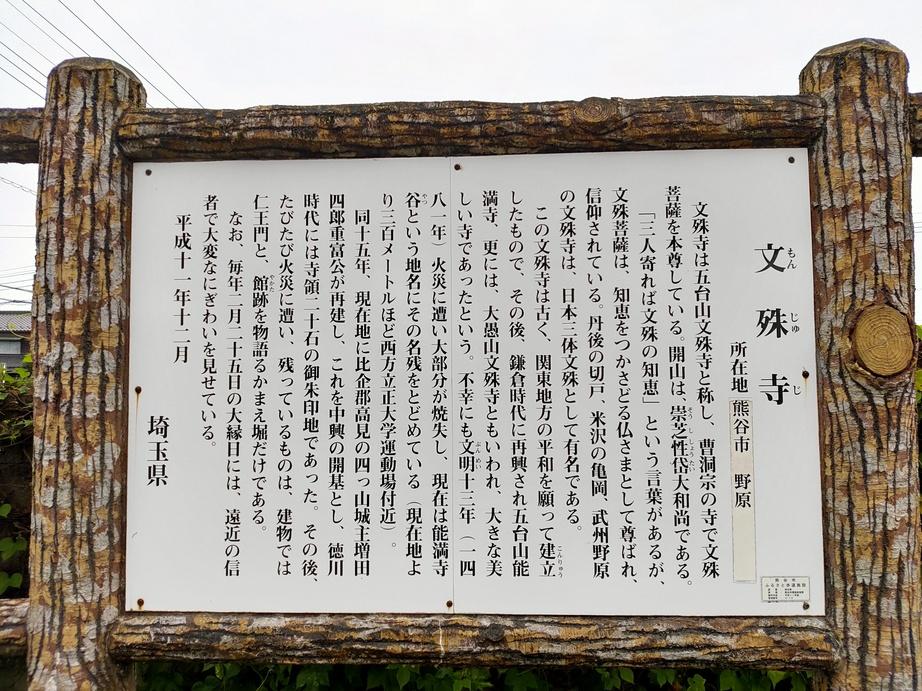 文殊寺
所在地 熊谷市 野原
文殊寺は五台山文殊寺と称し、曹洞宗の寺で文殊
菩薩を本尊している。開山は、崇芝性岱大和尚である。
「三人寄れば文殊の知恵」という言葉があるが、
文殊菩薩は、知恵をつかさどる仏さまとして尊ばれ、
信仰されている。丹後の切戸、米沢の亀岡、武州野原
の文殊寺は、日本三体文殊として有名である。
この文殊寺は古く、関東地方の平和を願って建立
したもので、その後、鎌倉時代に再興され五台山能
満寺、更には、大愚山文殊寺ともいわれ、大きな美
しい寺であったという。不幸にも文明十三年(一四
八一年)火災に遭い大部分が焼失し、現在は能満寺
谷という地名にその名残をとどめている(現在地よ
り三百メートルほど西方立正大学運動場付近)。
同十五年、現在地に比企郡高見の四つ山城主増田
四郎重富公が再建し、これを中興の開基とし、徳川
時代には寺領二十石の御朱印地であった。その後、
たびたび火災に遭い、残っているものは、建物では
仁王門と、館跡を物語るかまえ堀だけである。
なお、毎年二月二十五日の大縁日には、遠近の信
者で大変なにぎわいを見せている。
平成十一年十二月
埼玉県